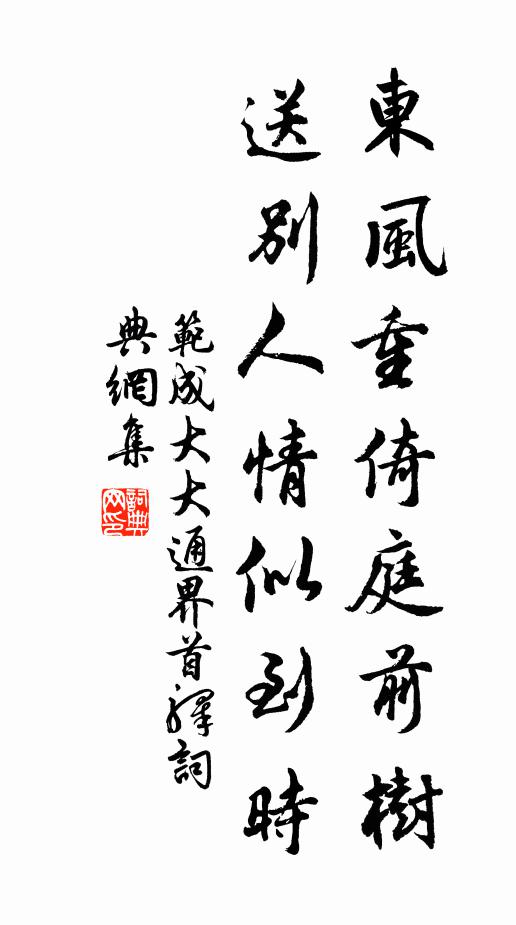 東風重倚庭前樹
送別人情似到時
範成大大通界首驛詞
典網集
詞典網印